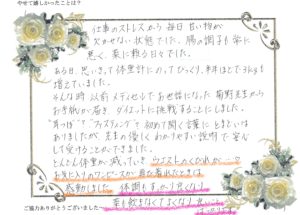 やせて嬉しかったことは？
仕事のストレスから毎日甘い物が
欠かせない状態でした。腸の調子も常に
悪く、薬に頼る日々でした。
ある日、思いきって体重計にのってびっくり、半年ほどで3kgも
増えていました。
そんな時 以前 メディセルでお世話になった 菊野先生から
お手紙が届き ダイエットに挑戦することにしました。
"耳つぼ"で"ファスティング"も初めて聞く言葉にとまどいは
ありましたが、先生の優しくわかりやすい説明で安心
して受けることができました。
どんどん体重が減っていき ウエストのくびれが…
お気に入りのワンピースが着られたときは
感動しました。体調もすっかり良くなり
薬も飲まなくてもよく
ご協力ありがとうございました